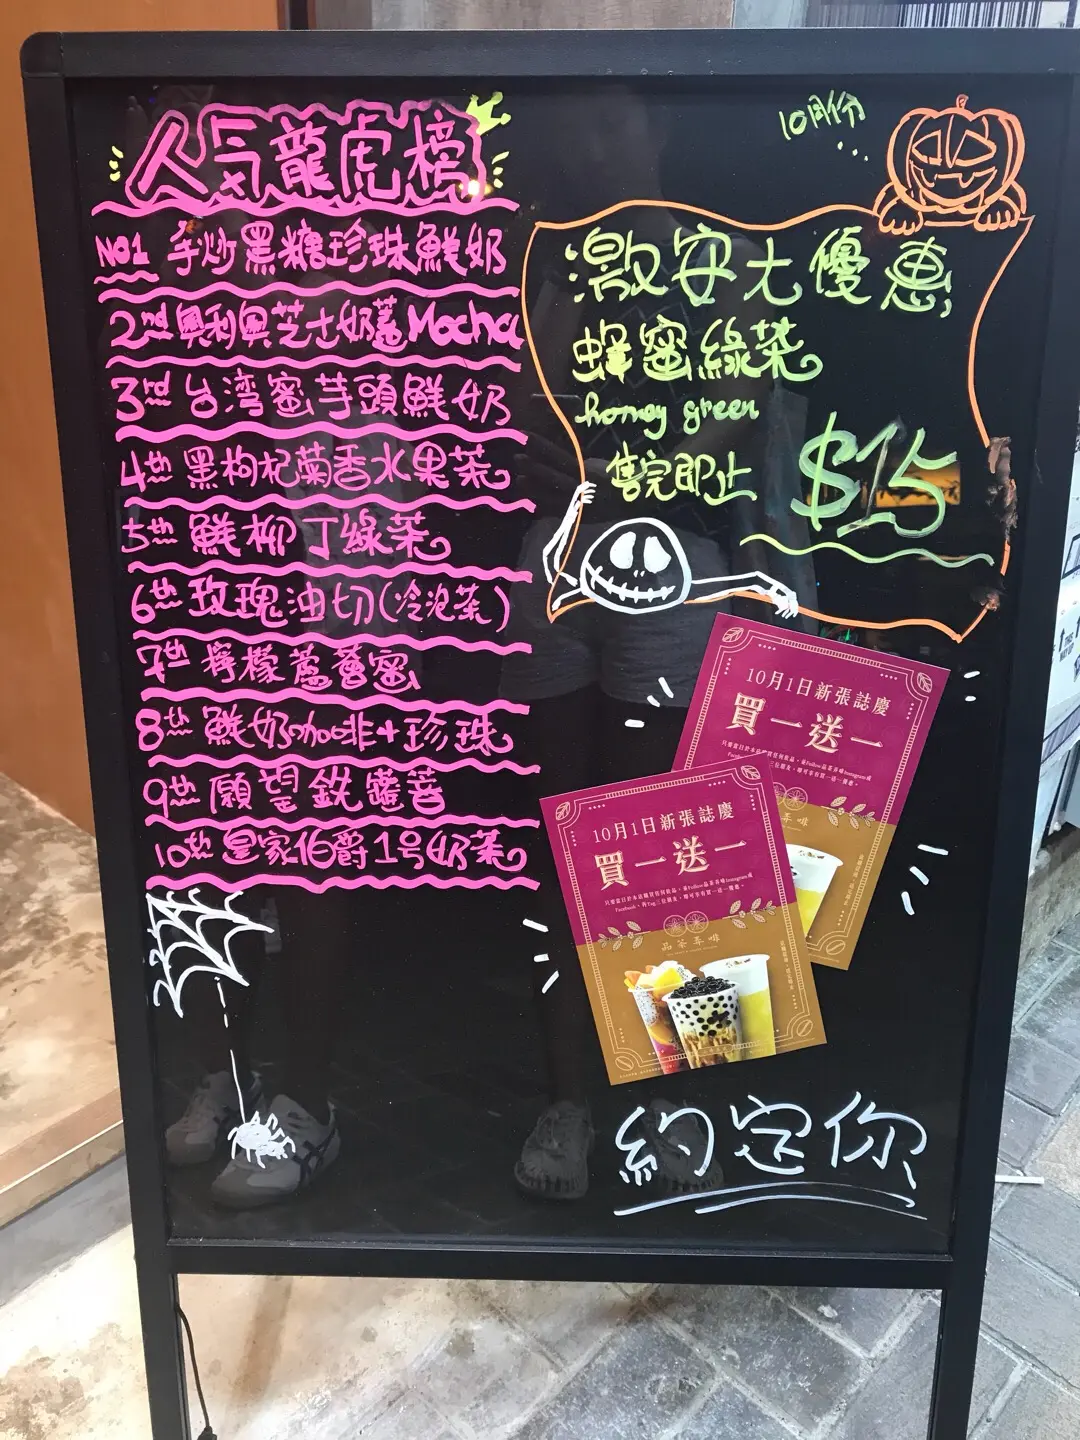 人気龍虎榜
NO1 手炒黑糖珍珠鮮奶
2nd 奧利奧芝士奶蓋Mocha
3rd 台湾蜜芋頭鮮奶
4th 黑枸杞菊香水果茶
5th 鮮柳丁綠茶
6th 玫瑰油切(冷泡茶)
7th 檸檬蘆薈蜜
8th 鮮奶咖啡+珍珠
9th 願望銑
10th 皇家伯爵1号奶茶
10月份
激安大優惠
蜂蜜綠茶
honey green
售完即止 $15
10月1日新張誌慶
買一送一
10月1日新張誌慶
買一送一
品茶尋啡
約定你